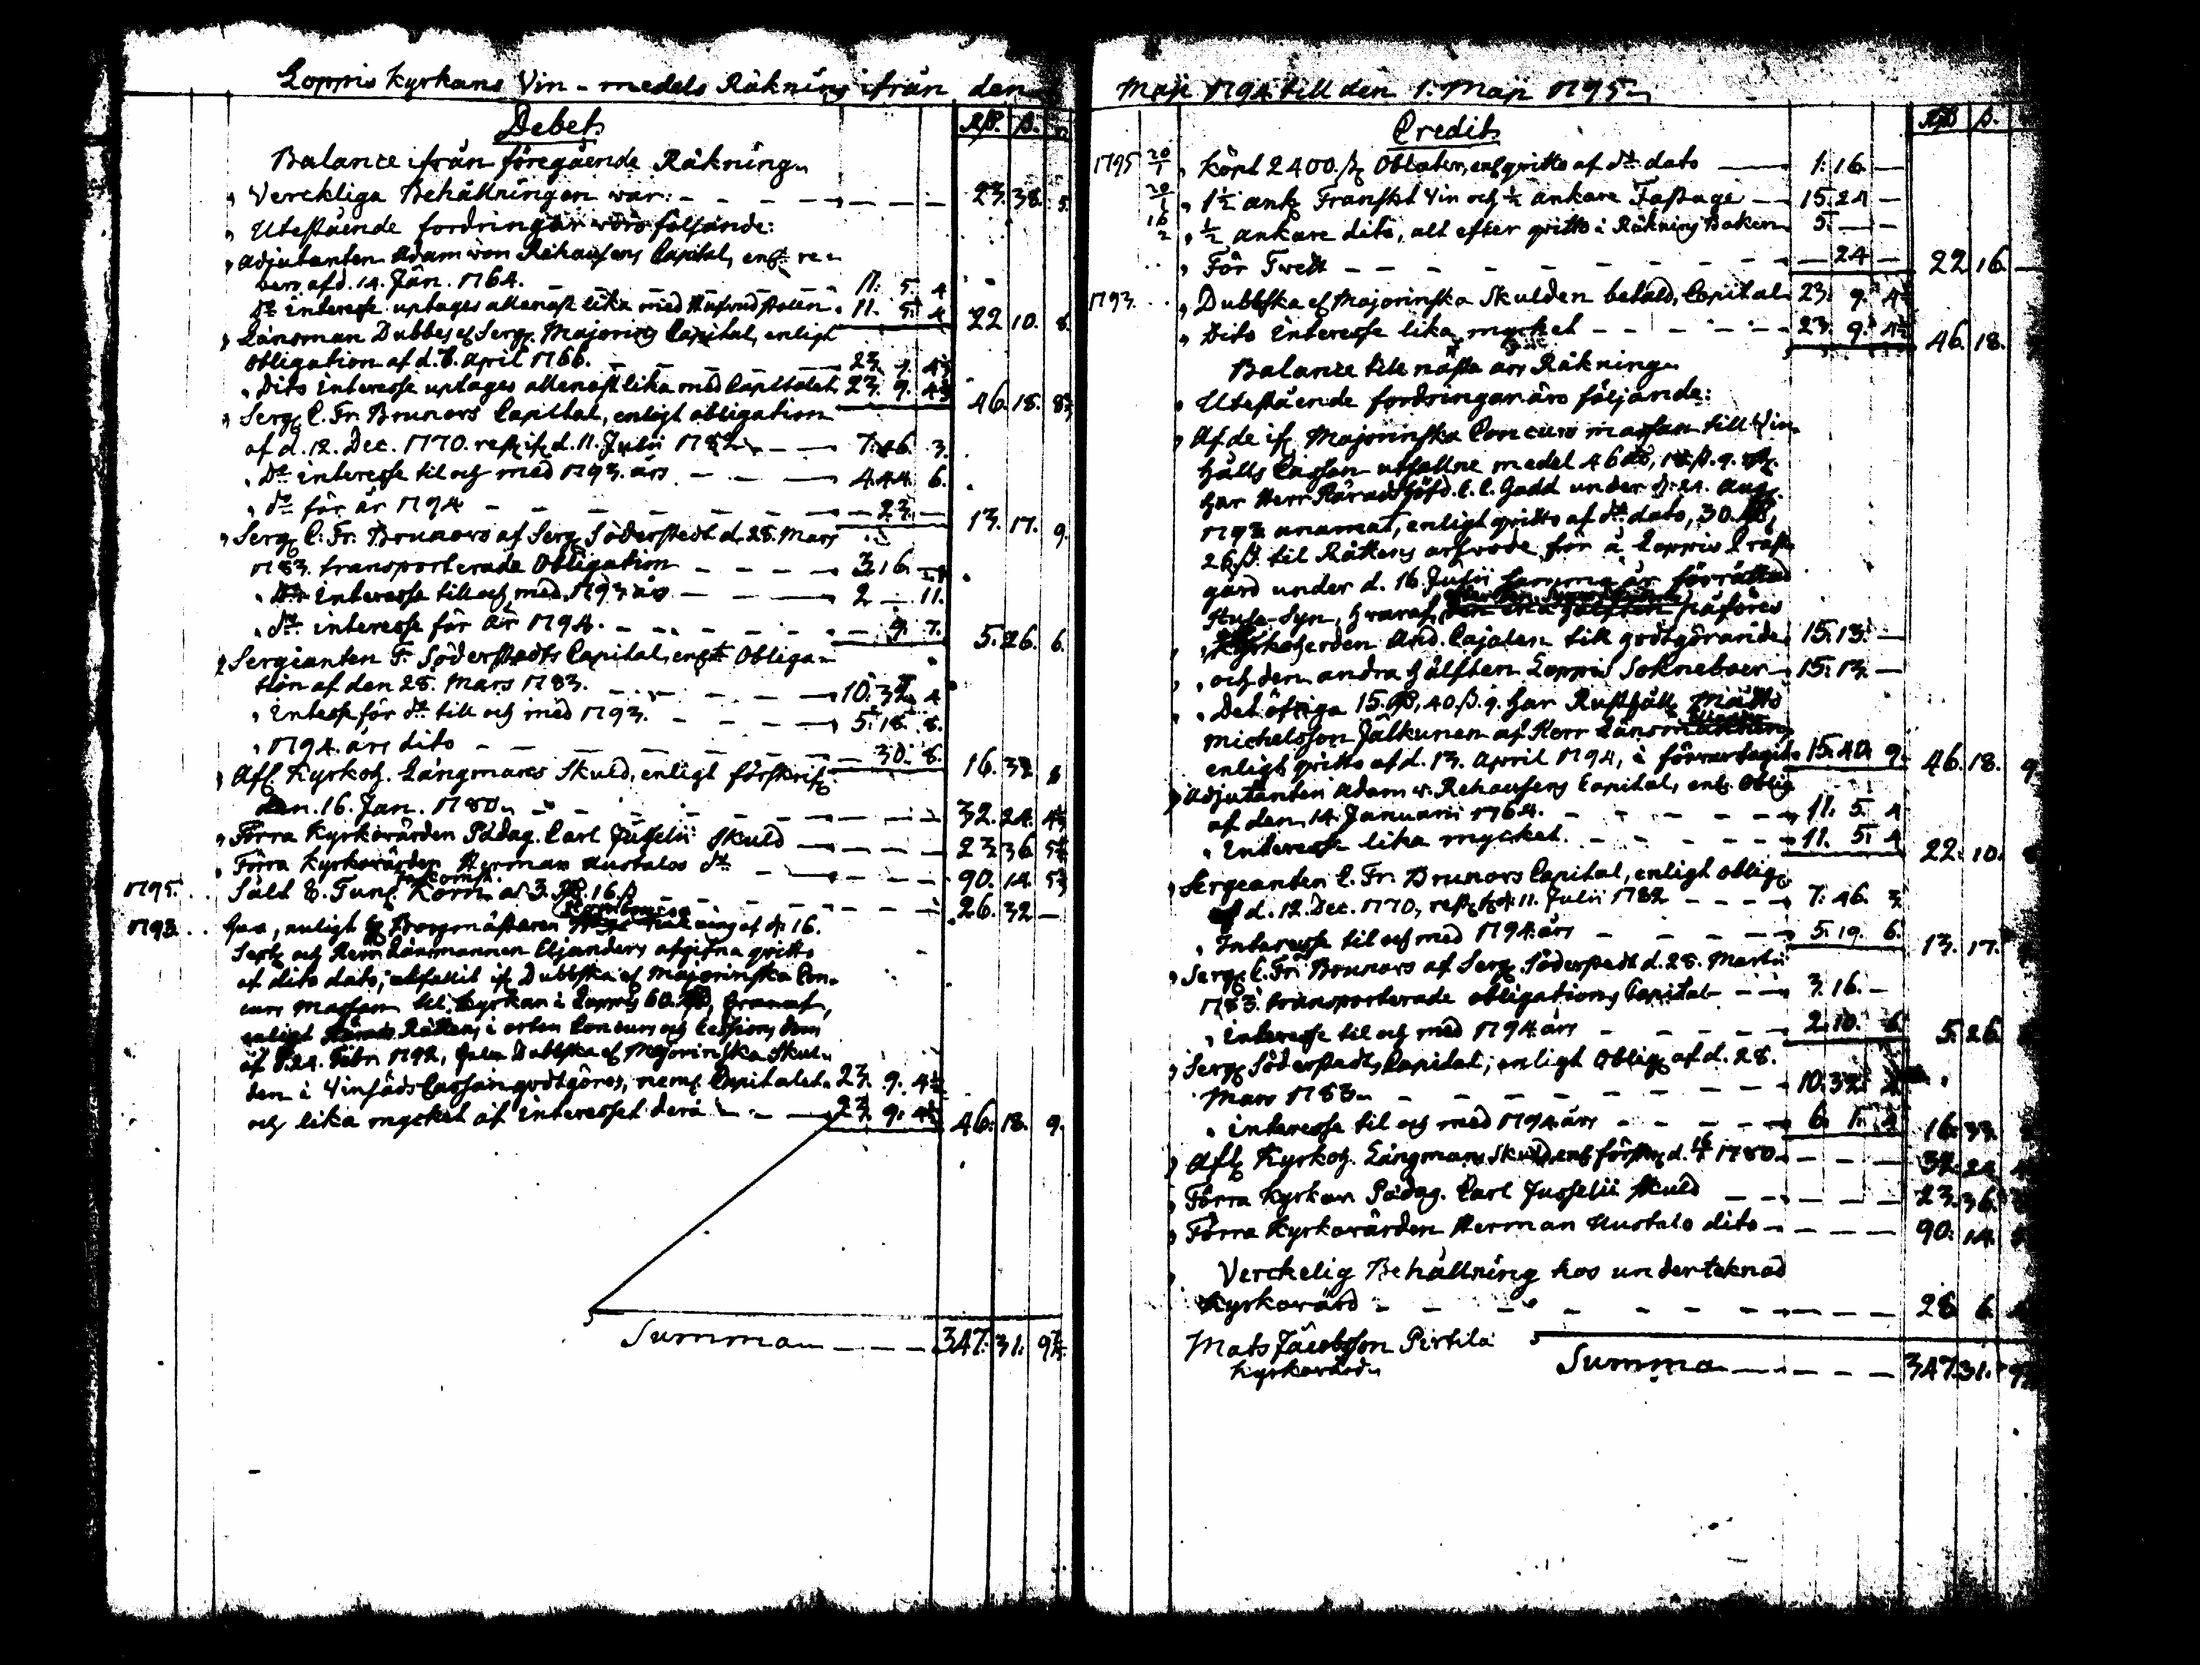 Loppis Kyrkans Vin-medels Räkning ifrån den
Debet. Rd. ß.
Balance ifrån föregående Räkning.
Verckliga Behållningen war. 23. 38. 5.
Utestående fordringar woro följande:
Adjutanten Adam von Rehausens Capital, enl. re-
vers af d. 14. Jan. 1764. 11. 5. 4
do interesse uptages allenast lika med Hufvudstolen. 11. 5. 4 22 10. 8.
Länsman Dubbes Serg. Majorins Capital, enligt
obligation af d. 8. April 1766. 23. 9. 4½
Dito interesse uptages allenast lika med Capitalet 23. 9. 4½ 46. 18. 8
Serg. C. Fr. Brunors Capital, enligt obligation
af d. 12. Dec. 1770. d. 11. Julii 1782 7. 46. 3.
do interesse til och med 1793. års 4. 44. 6.
do för år 1794 23. 13. 17. 9.
Serg. C. Fr. Brunors af Serg. Söderstedt d. 28. Mars
1783. transporterade Obligation 3 16
do Interesse till och med 1793 års 2 — 11.
do interesse för år 1794. 7. 5. 26. 6.
Sergeanten F. Söderstedts Capital, enligt Obliga-
tion af den 28. Mars 1783. 10. 32. 4
Interesse för do till och med 1793. 5. 18. 8.
1794. års dito 30. 8. 16. 33
Afl. Kyrkoh. Längmans Skuld, enligt förskrif.
den. 16. Jan. 1780. 32. 24. 4½
Förra Kyrkovärden Pädag. Carl Jusselii Skuld 23. 36. 5
Förra Kyrkovärden Herman Uustalos do 90. 14. 5
1795. Såld 8. Tunf. Korn a 3. Rd. 16. ß 26. 32 —
1793. enligt Borgmästaren af d. 16.
Sept. och Herr Länsmannen Eljanders afgifna qvitto
af dito dato, utfallit Dubbska Majorinska Con-
curs Massan til Kyrkan i Loppis 60. Rd, hvaraf,
enligt Rättens i orten Concurs och Cessions dom
af d. 24. Febr. 1792, hela Dubbska Majorinska Skul-
den i Vinsäds Cassan godtgöres, neml. Capitalet. 23. 9. 4½
och lika mycket af interesset derå 23. 9. 4½ 46. 18. 9.
Summa 347. 31. 9
Maji 1794. till den 1. Maji 1795.
Credit. Rd ß.
1795 20/1 Köpt 2400. Oblater, enl. qvitto af do dato 1. 16. —
20/1 1½ ank. Franskt Vin och ½ ankare Fastage 15. 24 —
16/2 ½ ankare dito, alt efter qvitto i Räknings Boken 5. — —
För Twett 24 — 22 16. —
1793. Dubbska Majorinska Skulden betald, Capital 23. 9. 4½
Dito Interesse lika mycket 23. 9. 4½ 46. 18.
Balance till nästa års Räkning.
Utestående fordringar äro följande:
Af de Majorinska Concurs massan till Vin-
hålls Cassan utfallne medel 46 Rd, 18. ß. 9.
har Herr Häradshöfd. C. C. Gadd under d. 24. Aug.
1793. anamat, enligt qvitto af do dato, 30. Rd,
26. ß. til Rättens arfvode för å Loppis Präste-
gård under d. 16. Julii samma år förrättad
Husa-Syn, hvaraf påföres
Kyrkoherden And. Cajalen till godtgörande 15. 13. —
och den andra hälften Loppis Sokneboer 15. 13. —
Det öfriga 15. Rd, 40. ß. 9. har Rusthåll. Matts
Michelsson Jälkunen af Herr Länsman
enligt qvitto af d. 13. April 1794, i förvar tagit 15. 40. 9. 46. 18. 9
Adjutanten Adam v. Rehausens Capital, enl. Oblig.
af den 14. Januarii 1764. 11. 5. 4
Interesse lika mycket. 11. 5. 4 22. 10.
Sergeanten C. Fr. Brunors Capital, enligt oblig.
af d. 12. Dec. 1770, d. 11. Julii 1782 7. 46. 3
Interesse til och med 1794. års 5. 19. 6. 13. 17.
Serg. C. Fr. Brunors af Serg. Söderstedt d. 28. Martii
1783. transporterade obligations Capital 3. 16. —
interesse til och med 1794. års 2. 10. 6. 5. 26
Serg. Söderstedts Capital, enligt Oblig. af d. 28.
Mars 1783. 10. 32. 4
interesse til och med 1794. års 6. 1. 4 16. 33.
Afl. Kyrkoh. Längmans Skuld, enl. förskr. d. 16/1 1780 32. 24
Förra Kyrkov. Pädag. Carl Jusselii Skuld 23. 36.
Förra Kyrkovärden Herman Uustalo dito 90. 14.
Verckelig Behållning hos underteknad
Kyrkovärd 28 6
Mats Jacobsson Pirtilä
Kyrkovärd.
Summa 347. 31. 9